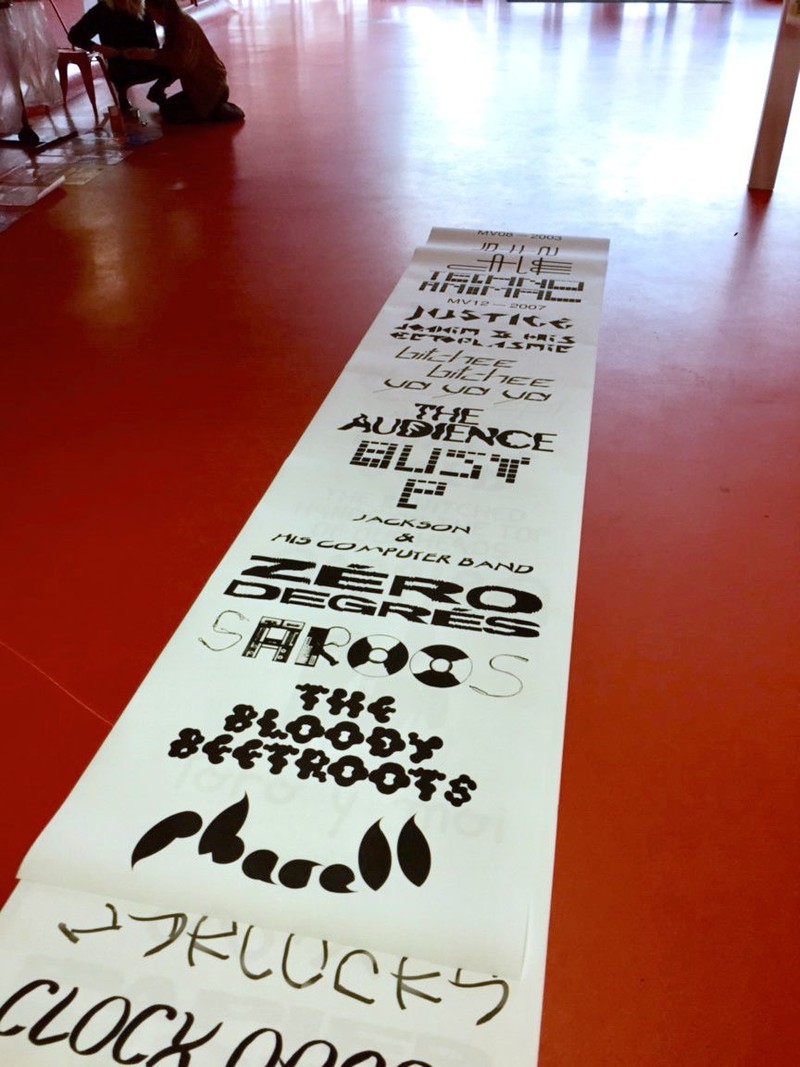 MV08 — 2003
TEKNO
ANIMAL
MV12 — 2007
JUSTICE
JOAKIM & HIS
ECTOPLASMIC
bitchee
bitchee
ya ya ya
THE
AUDIENCE
BUSY
P
JACKSON
&
HIS COMPUTER BAND
ZÉRO
DEGRÉS
SAROOS
THE
BLOODY
BEETROOTS
pharell
CLOCK